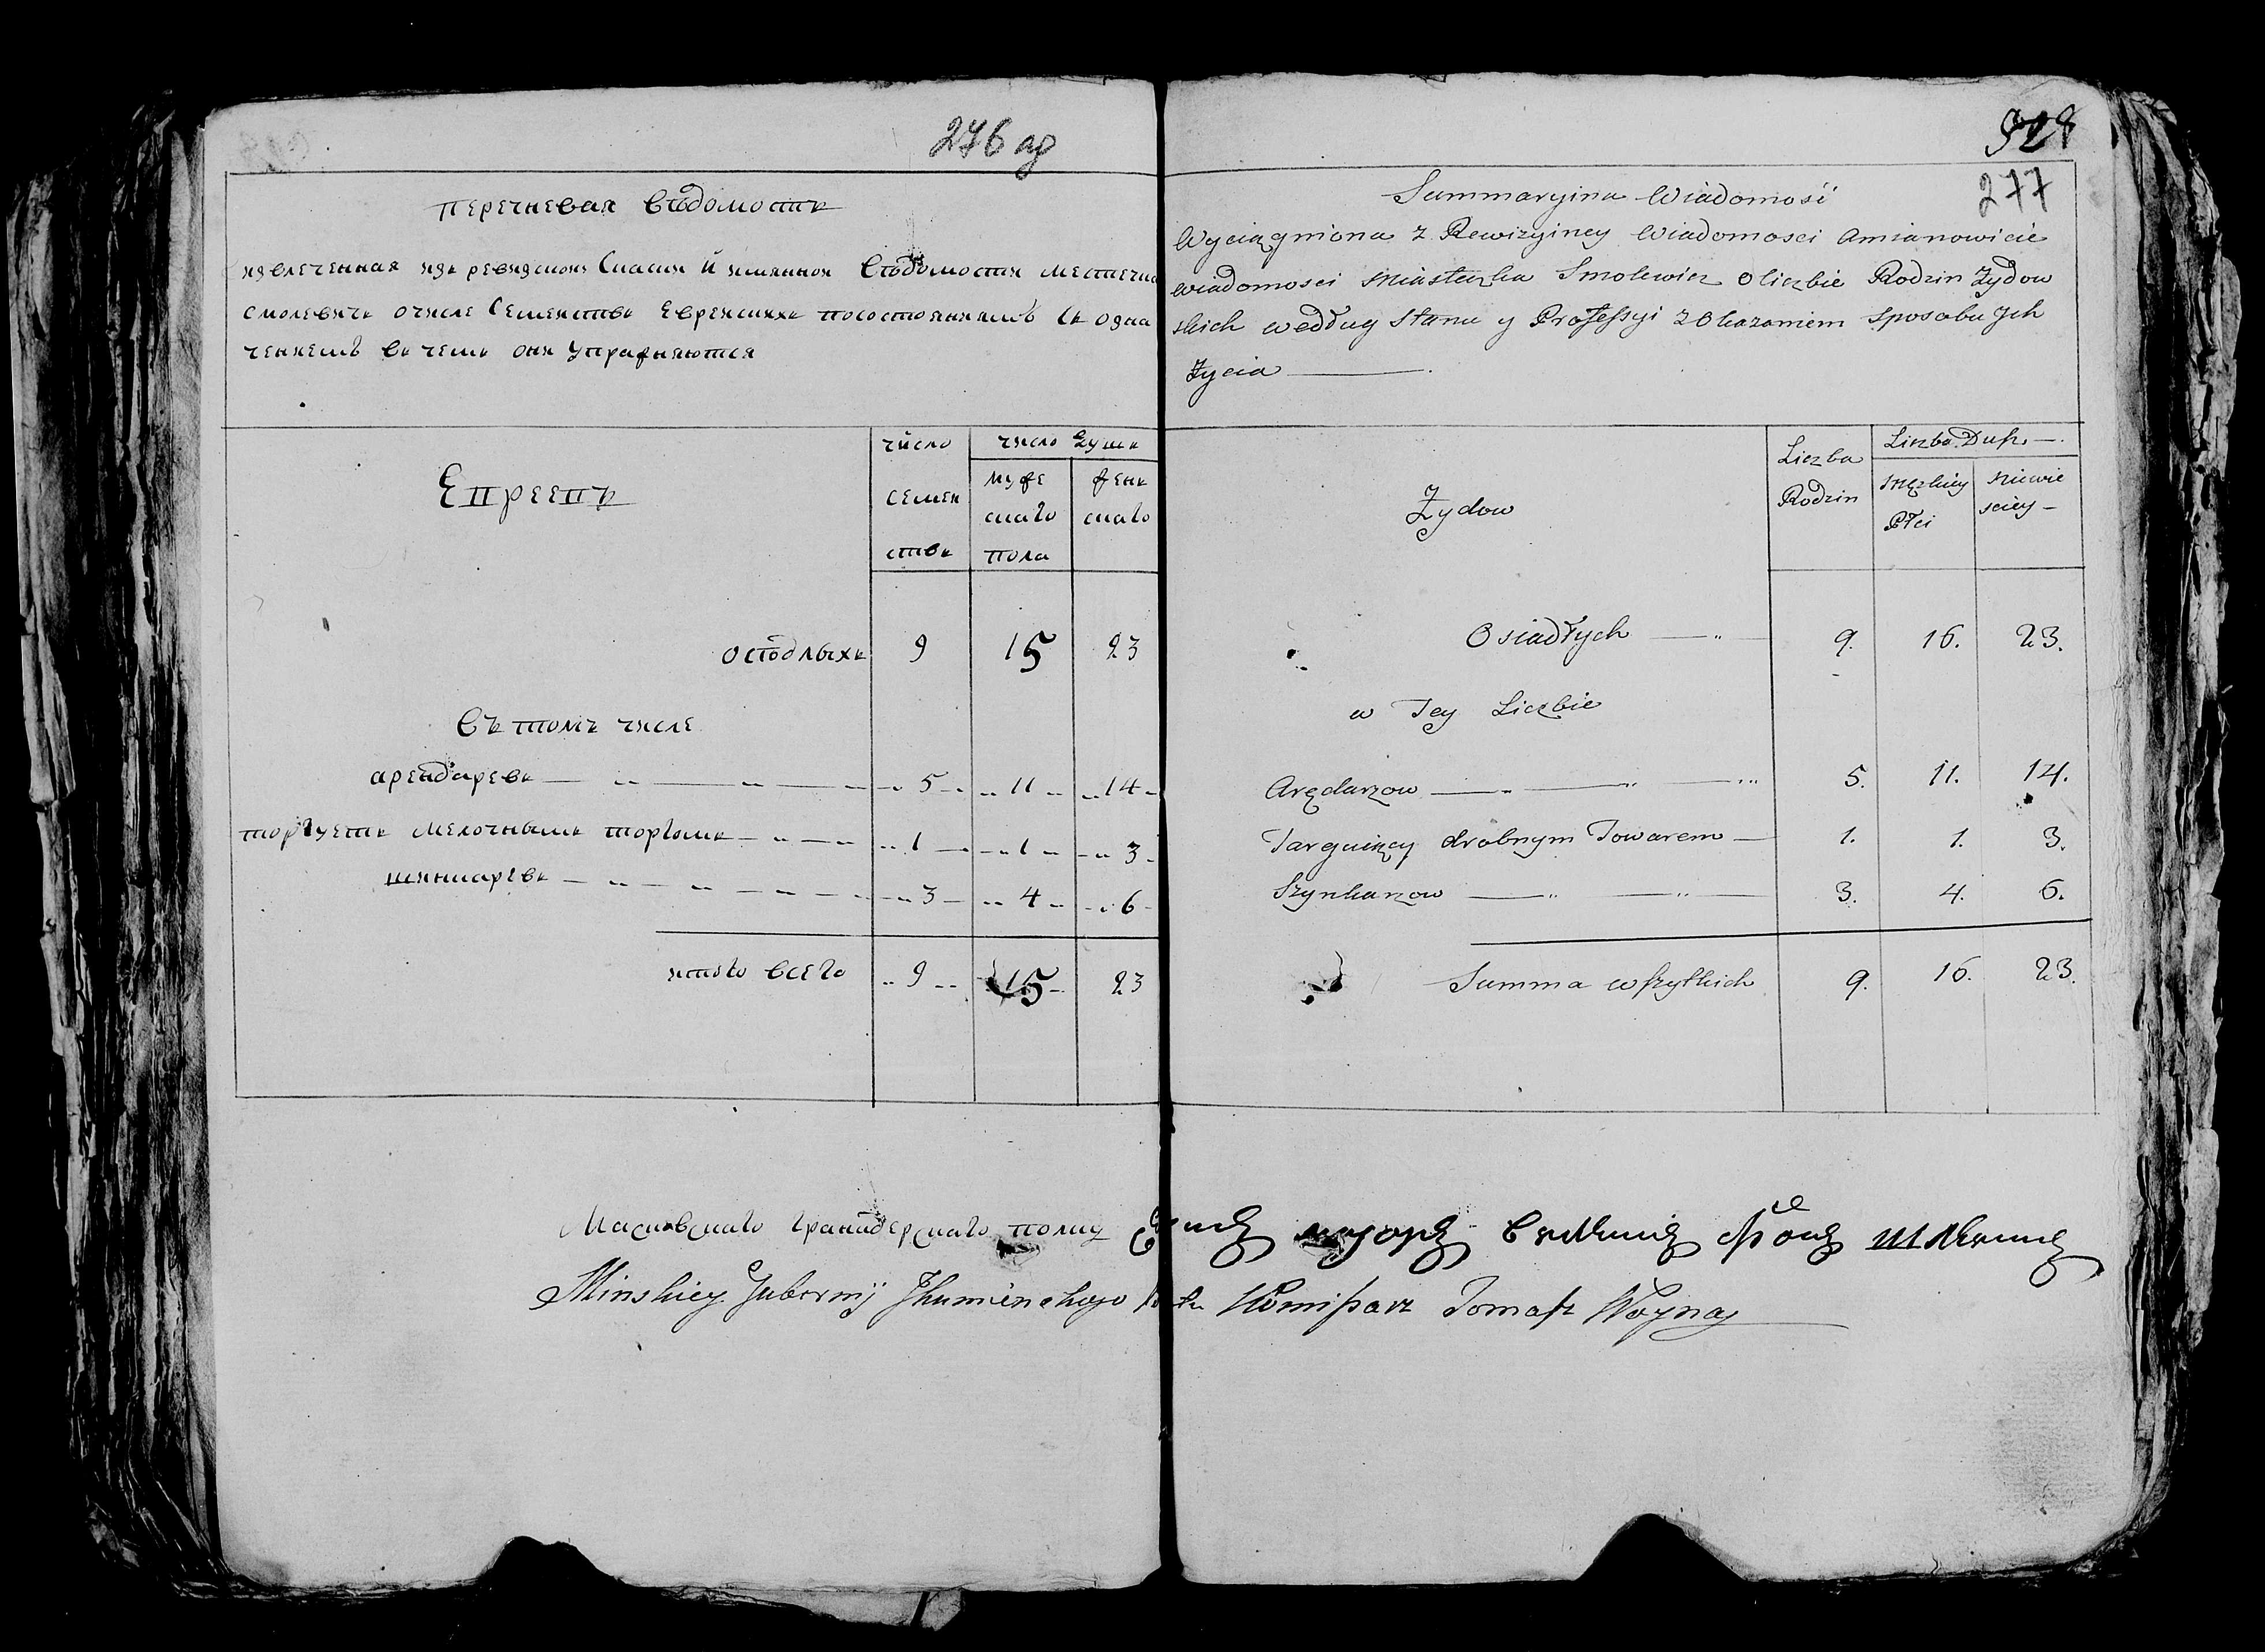 276 аз
перечневая вѣдомость
извлеченная изъ ревизскои Сказки и имяннои вѣдомости местечка
смолевичъ о числе Семействъ Еврейскихъ по состояниямъ съ озна
чениемъ въ чемъ они упражняются
Евреевъ
число семей ствъ
число душъ
муже скаго пола
женъ скаго
оседлыхъ 9 15 23
Въ томъ числе
арендаревъ — 5 11 14
торгуетъ мелочнымъ торгомъ — 1 1 3
шинкаревъ — 3 4 6
итого всего 9 15 23
328
277
Summaryina Wiadomość
Wyciągniona z Rewizyiney Wiadomosci Amianowicie
wiadomosci Miasteczka Smolewicz o liczbie Rodzin Żydow
skich według Stanu y Professyi z Okazaniem Sposobu Jch
Życia
Żydow
Liczba Rodzin
Liczba Dusz —
Męzkiey Płci
Niewie sciey —
Osiadłych — 9. 16. 23.
w Tey Liczbie
Arędarzow — 5. 11. 14.
Targuiący drobnym Towarem — 1. 1. 3.
Szynkarzow — 3. 4. 6.
Summa wszytkich 9. 16. 23.
Масковскаго гранадерскаго полку маіоръ
Minskiey Gubernij Jhumenskego Komissarz Tomasz Woyna